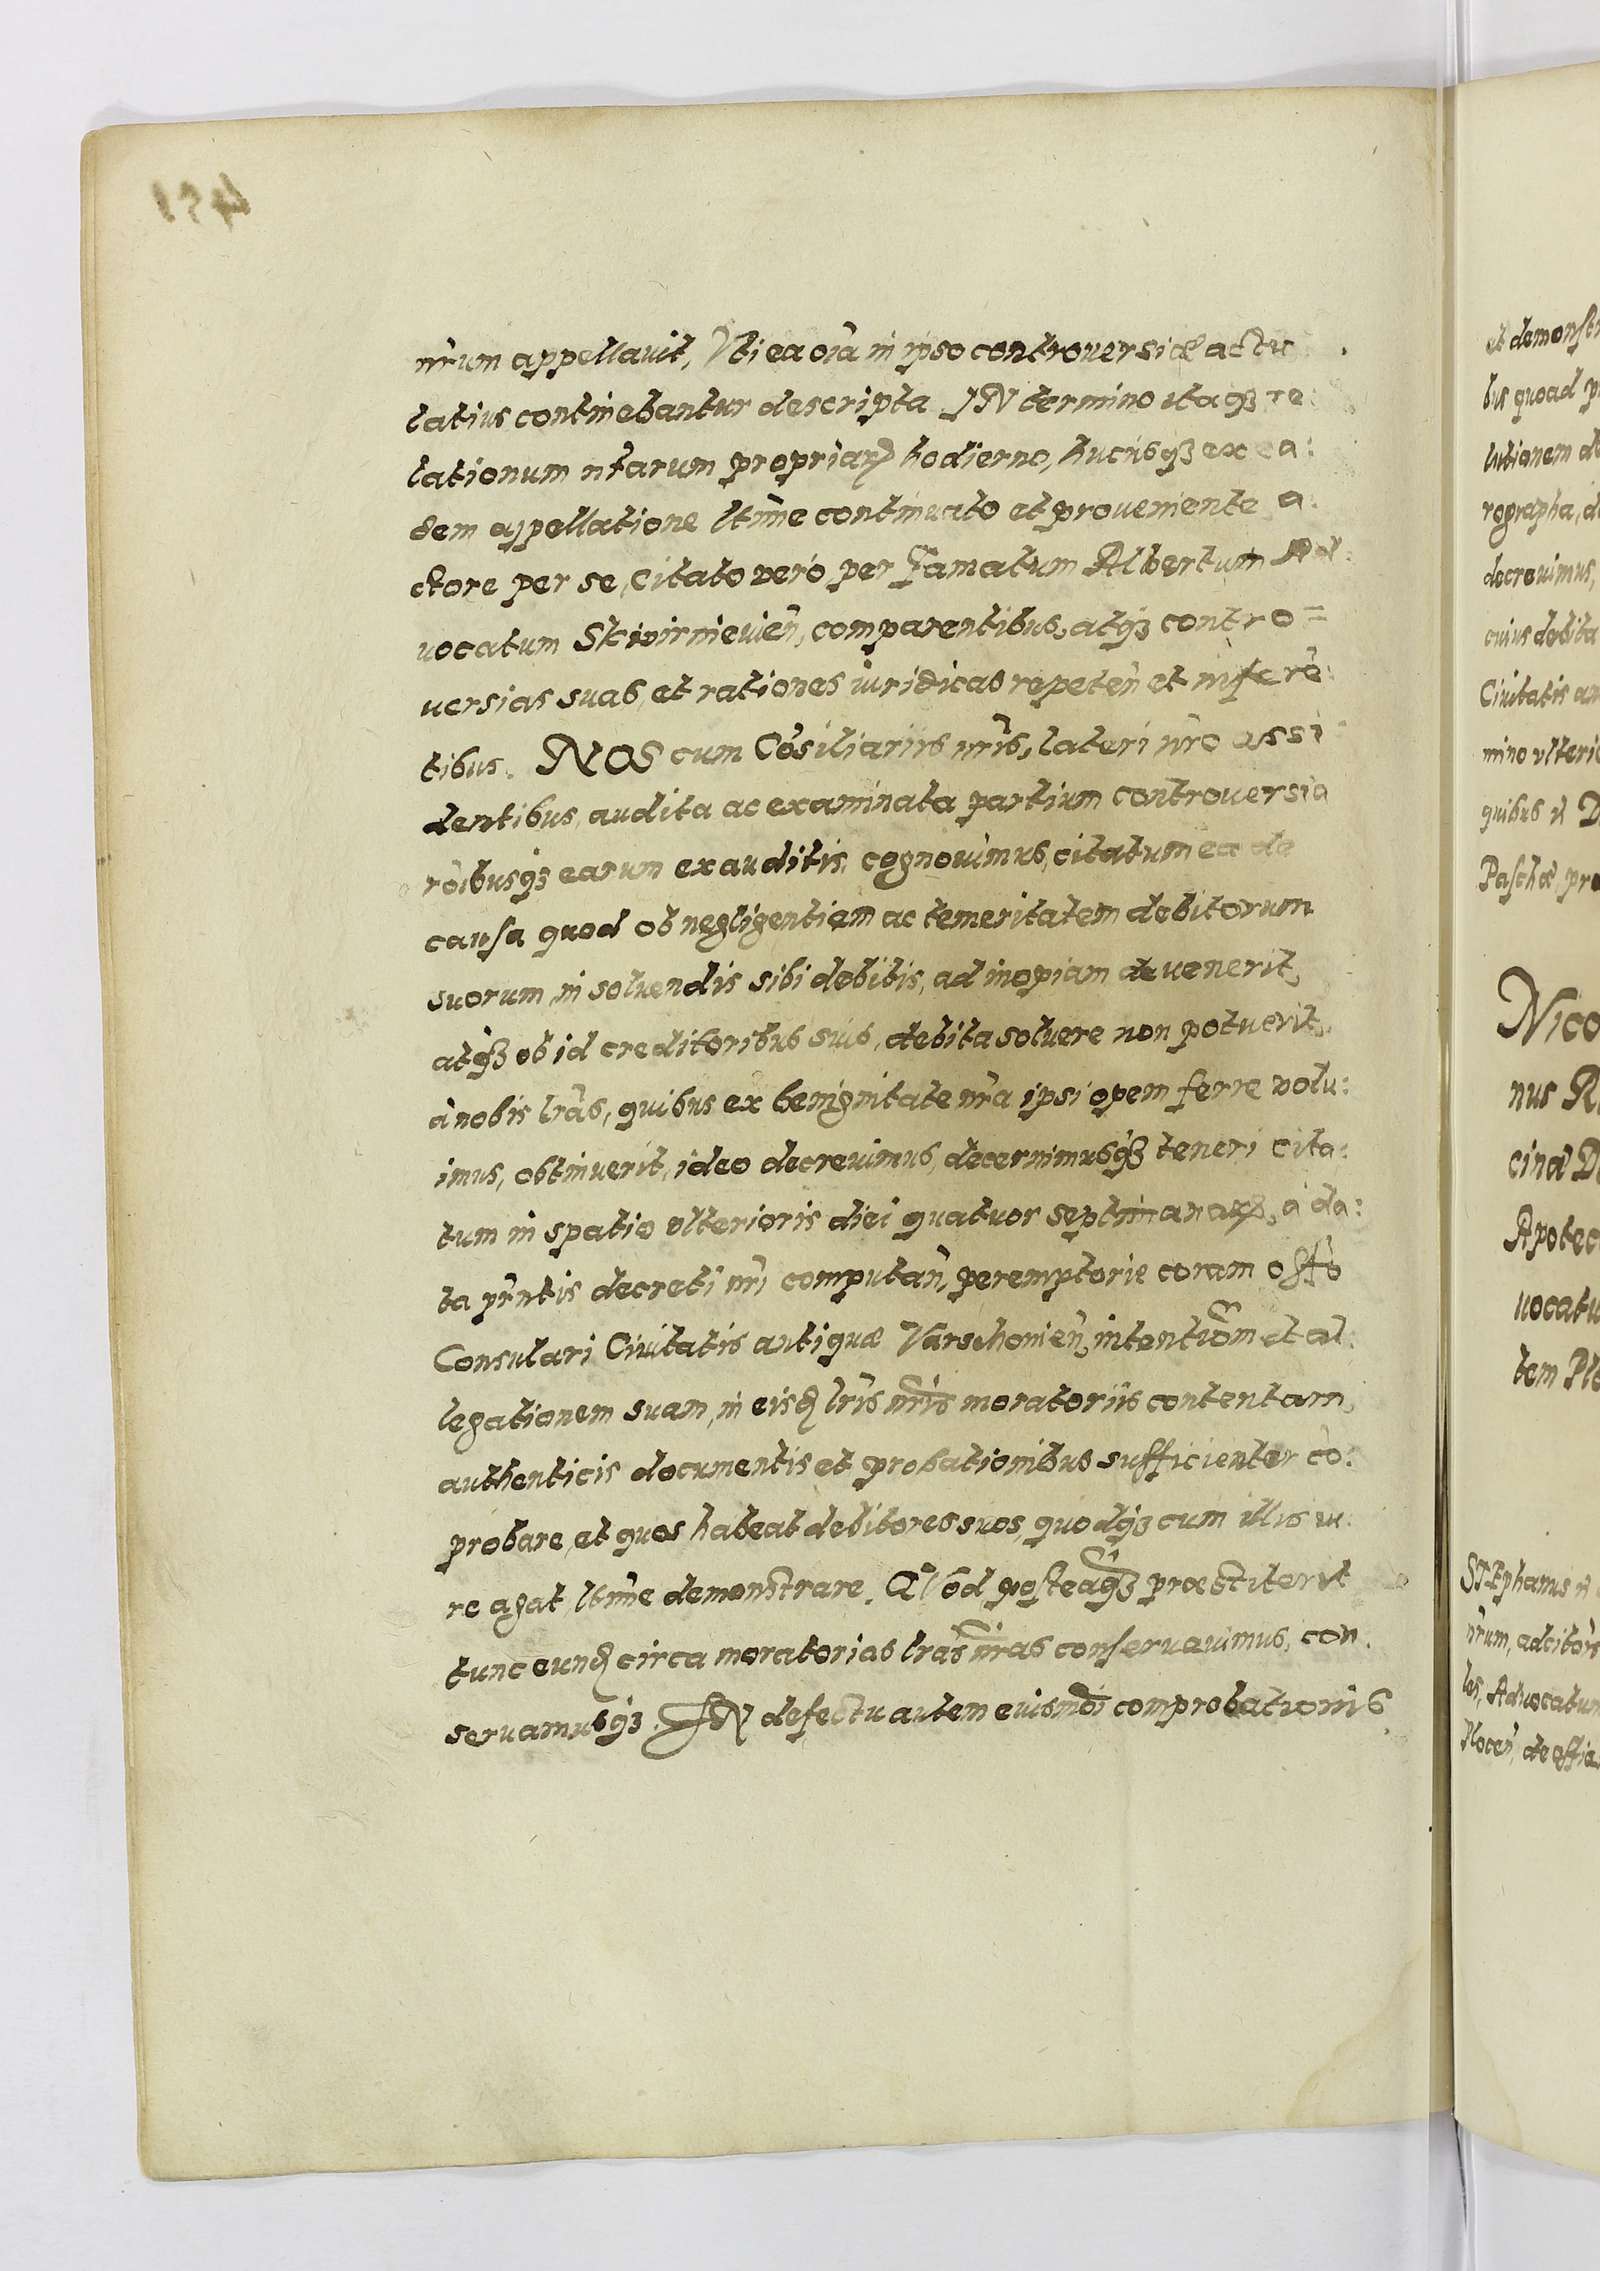 nr̃um appellauit, Vti ea oĩa in ipso controuersiæ actu
latius continebantur descripta IN termino itaqꝫ re:
lationum nr̃arum propriarꝝ hodierno, hucusqꝫ ex ea:
dem appellatione ltĩme continuato et proueniente a:
ctore per se, citato vero per famatum Albertum Ad:
uocatum Skwirnieuien̄, comparentibus, atqꝫ contro=
uersias suas, et rationes iuridicas repeten̄ et inferẽ:
tibus. NOS cum Cõsiliariis nr̃is, lateri nr̃o assi
dentibus, audita ac examinata partium controuersia
rõibusqꝫ earum exauditis, cognouimus, citatum ea de
causa quod ob negligentiam ac temeritatem debitorum
suorum, in soluendis sibi debitis, ad inopiam deuenerit,
atqꝫ ob id creditoribus suis, debita soluere non potuerit,
à nobis lr̃as, quibus ex benignitate nr̃a ipsi opem ferre volu:
imus, obtinuerit, ideo decreuimus, decernimusqꝫ teneri cita:
tum in spatio vlterioris diei quatuor septimanarꝝ, à da:
ta pñtis decreti nr̃i computan̄, peremptorie coram offõ
Consulari Ciuitatis antiquæ Varschouien̄, intentiõm et al:
legationem suam, in eisd̃ lr̃is nr̃is moratoriis contentam,
authenticis documentis et probationibus sufficienter cõ:
probare, et quos habeat debitores suos, quodqꝫ cum illis iu:
re agat, ltĩme demonstrare. Quod posteaqꝫ præstiterit
tunc eund̃ circa moratorias lr̃as nr̃as conseruauimus, con
seruamusqꝫ. IN defectu autem eiusmõi comprobationis
et demonst
bis quoad p
lutionem de
rographa, d
decreuimus,
cuius debita
Ciuitatis an
mino vlteri
quibus et D
Paschæ pro
Nico
nus R
cinæ D
Apotec
uocatu
tem Pl
STEphanus et
nr̃um, ad citõis
los, Aduocatum
Plocen̄, de offic